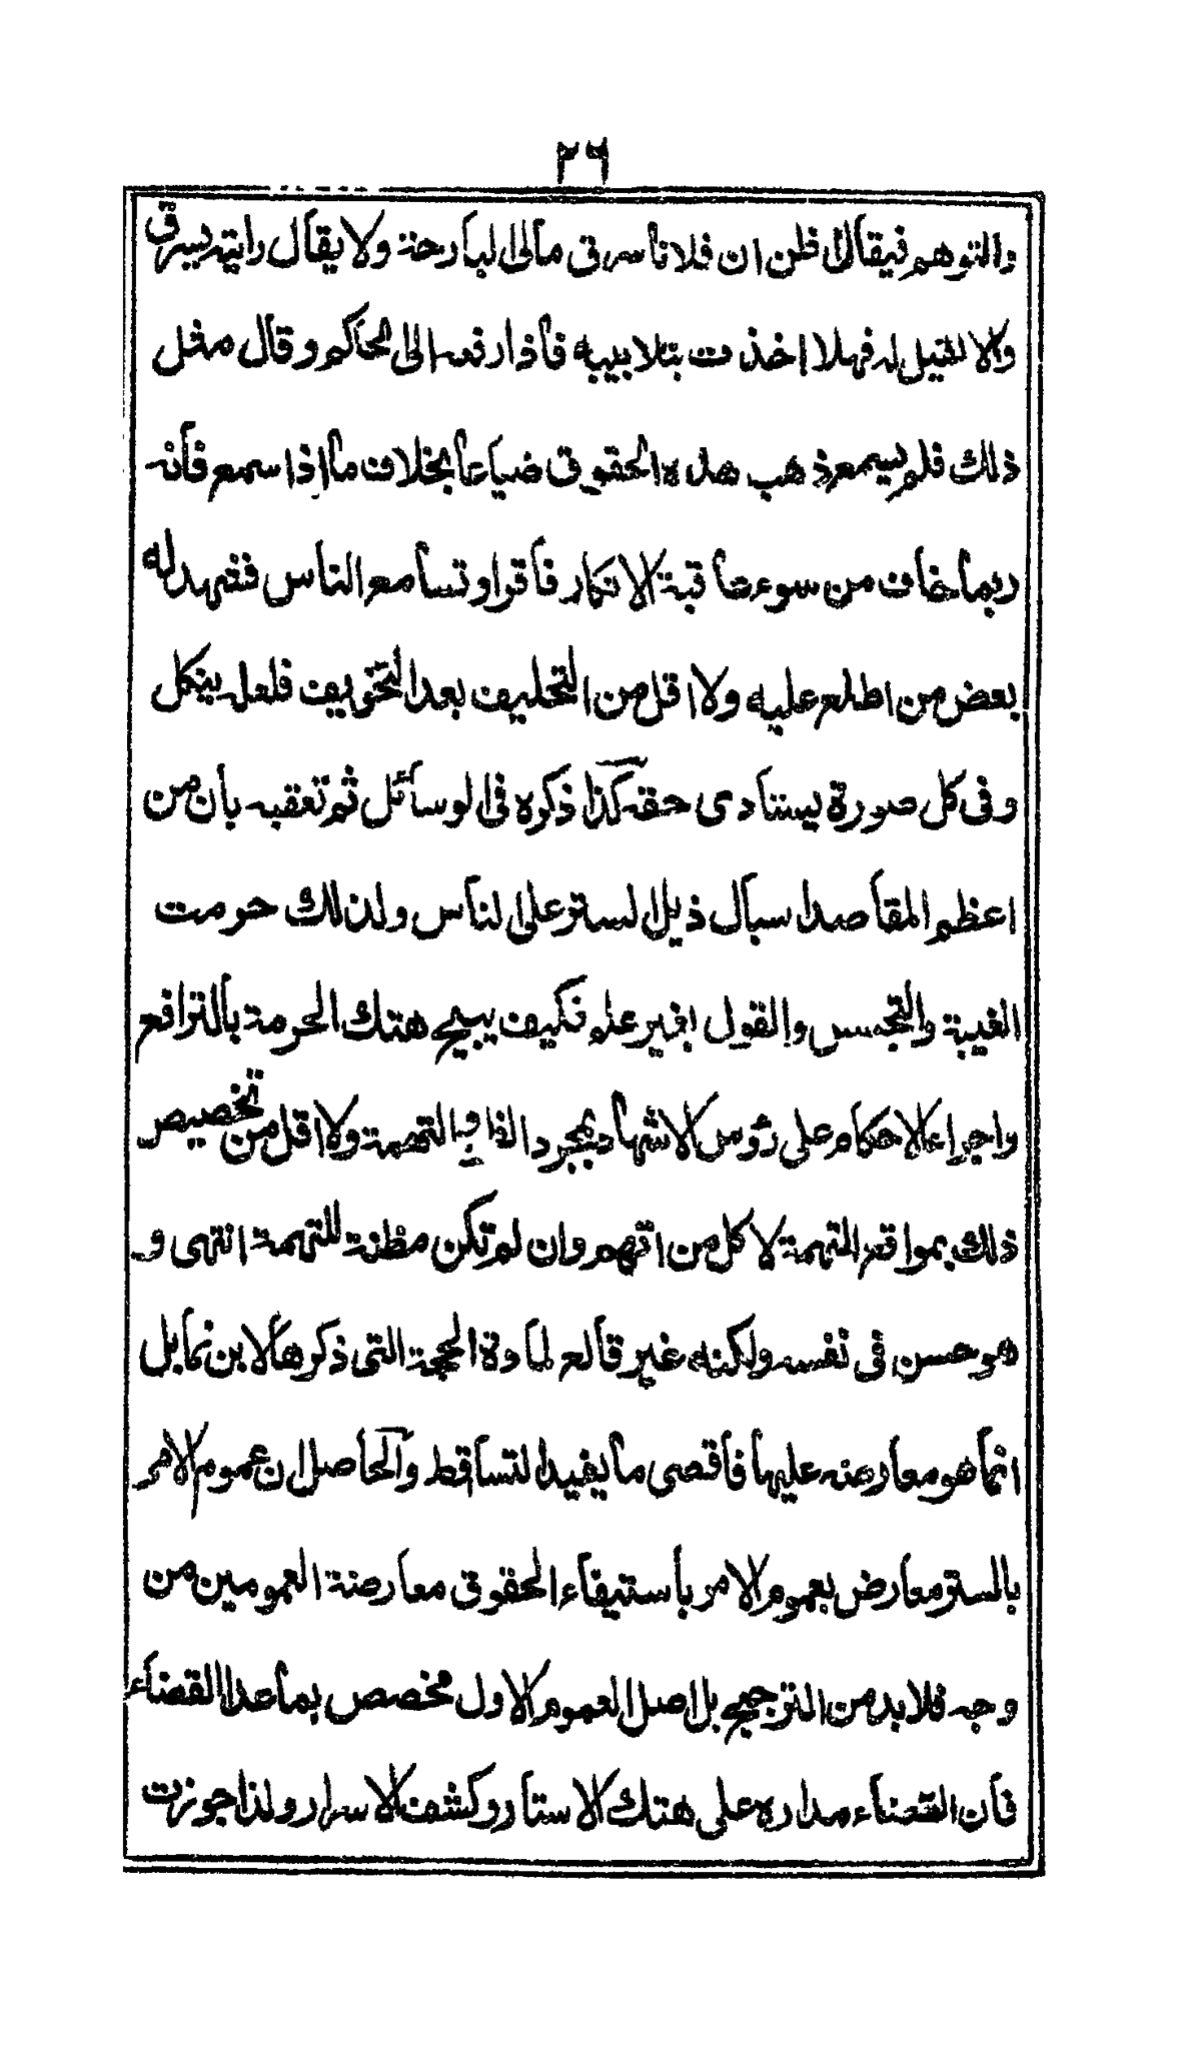 ٢٦
والتوهم فيقال اظن ان فلانا سرق مالى البارحة ولا يقال رايته يسرق
والا لقيل له فهلا اخذت بتلابيبه فاذا رفعه الى الحاكم وقال مثل
ذلك فلم يسمع ذهب هذه الحقوق ضياعا بخلاف ما اذا سمع فانه
ربما خاف من سوء عاقبة الانكار فاقر او تسامع الناس فشهد له
بعض من اطلع عليه ولا اقل من التحليف بعد التخويف فلعله ينكل
وفى كل صورة يستادى حقه كذا ذكره فى الوسائل ثم تعقبه بان من
اعظم المقاصد اسبال ذيل الستر على الناس ولذلك حرمت
الغيبة والتجسس والقول بغير علم فكيف يبيح هتك الحرمة بالترافع
واجراء الاحكام على رؤس الاشهاد بمجرد التهمة ولا اقل من تخصيص
ذلك بمواقع التهمة لا كل من اتهم وان لم تكن مظنة للتهمة انتهى و
هو حسن فى نفسه ولكنه غير قالع لمادة الحجة التى ذكرها لابن نما بل
انما هو معارضه عليها فاقصى ما يفيد التساقط والحاصل ان عموم الامر
بالستر معارض بعموم الامر باستيفاء الحقوق معارضة العمومين من
وجه فلا بد من الترجيح بل اصل العموم الاول مخصص بما عدا القضاء
فان القضاء مداره على هتك الاستار وكشف الاسرار ولذا جوزت